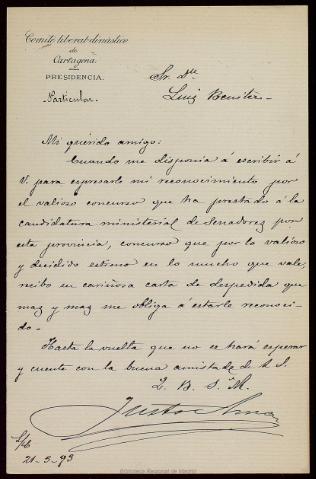 Comité liberal-dinástico
de
Cartagena.
PRESIDENCIA.
Particular.
Sr. Dn
Luis Benítez.
Mi querido amigo:
Cuando me disponia á escribir á
V. para expresarle mi reconocimiento por
el valioso concurso que ha prestado á la
candidatura ministerial de Senadores por
esta provincia, concurso que por lo valioso
y decidido estimo en lo mucho que vale,
recibo su cariñosa carta de despedida que
mas y mas me obliga á estarle reconoci-
do.
Hasta la vuelta que no se hará esperar
y cuente con la buena amistad de S. S.
Q. B. S. M.
Justo
21-3-93
Biblioteca Regional de Madrid